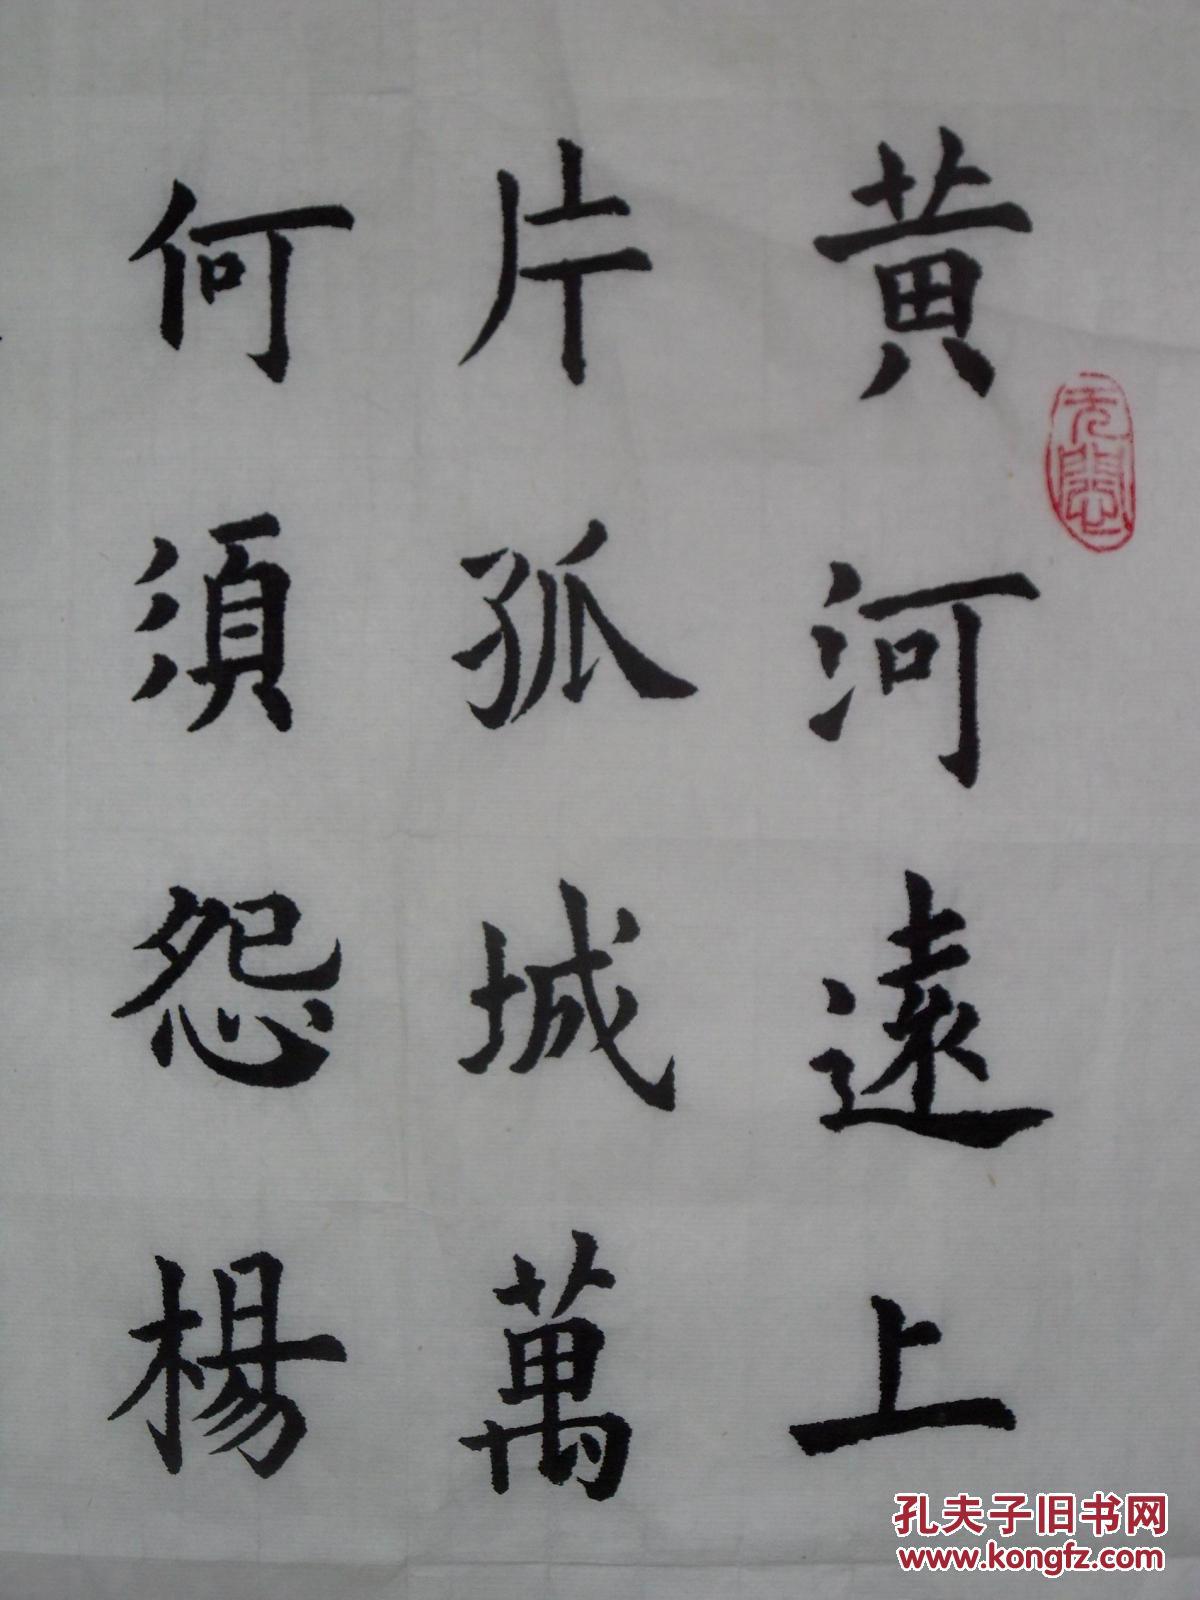 黄河遠上
片孤城萬
何須怨楊
孔夫子旧书网
www.kongfz.com